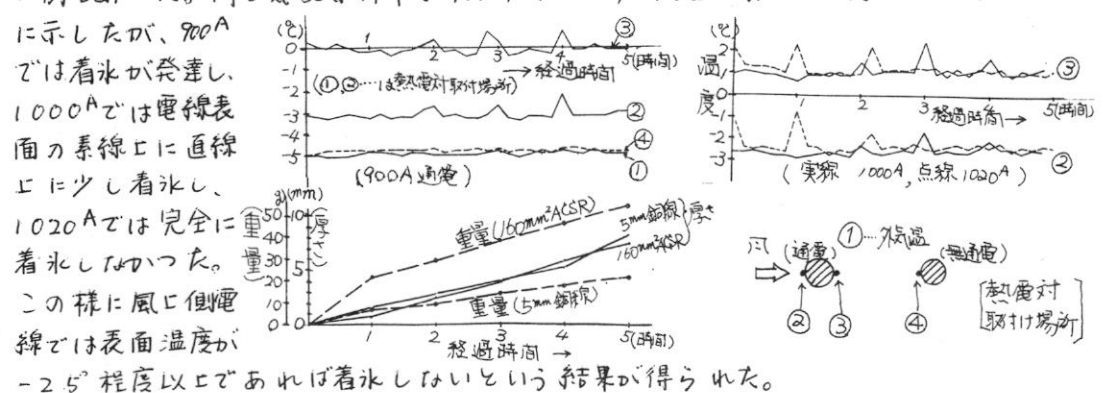 に示したが、900A
では着氷が発達し、
1000Aでは電線表
面の素線上に直線
上に少し着氷し、
1020Aでは完全に
着氷しなかつた。
この様に風上側電
線では表面温度が
-2.5°程度以上であれば着氷しないという結果が得られた。
(℃)
0
-1
-2
-3
-4
-5
1 2 3 4 5(時間)
→経過時間
(①,②……は熱電対取付場所)
③
②
④
①
(900A通電)
(℃)
温
度
2
1
0
-1
-2
-3
1 2 3 4 5(時間)
経過時間→
③
②
(実線 1000A, 点線1020A)
g (mm)
(重量)
(厚さ)
50 10
40
30 5
20
10
0 0
重量(160mm²ACSR)
5mm銅線
160mm²ACSR
厚さ
重量(5mm銅線)
1 2 3 4 5(時間)
経過時間 →
①…外気温
風 (通電) (無通電)
② ③ ④
[熱電対
取付け場所]